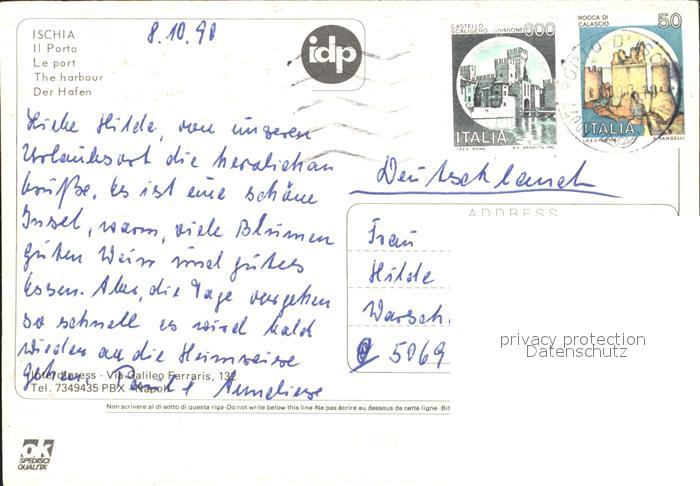 ISCHIA
Il Porto
Le port
The harbour
Der Hafen
8.10.90
idp
CASTELLO
SCALIGERO - SIRMIONE
600
ITALIA
I.P.Z.S. ROMA
ROCCA DI
CALASCIO
50
ITALIA
I.P.Z.S. ROMA
E. VANGELLI
Liebe Hilde, von unseren
Urlaubsort die herzlichen
Grüße. Es ist eine schöne
Insel, warm, viele Blumen
guten Wein und gutes
Essen. Aber, die Tage vergehen
so schnell es wird bald
wieder an die Heimreise
gehen.
Anneliese
Interdipress - Via Galileo Ferraris, 132
Tel. 7349435 PBX - Napoli
Deutschland
ADDRESS
Frau
Hilde
Warsch
5069
privacy protection
Datenschutz
Non scrivere al di sotto di questa riga-Do not write below this line-Ne pas écrire au dessous de cette ligne-Bit
ok
SPEDISCI
QUALITÀ